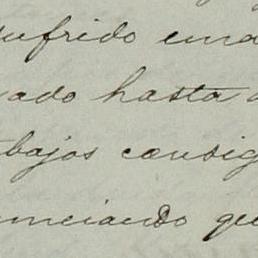 sufrido una
ado hasta
bajos consig
unciando que